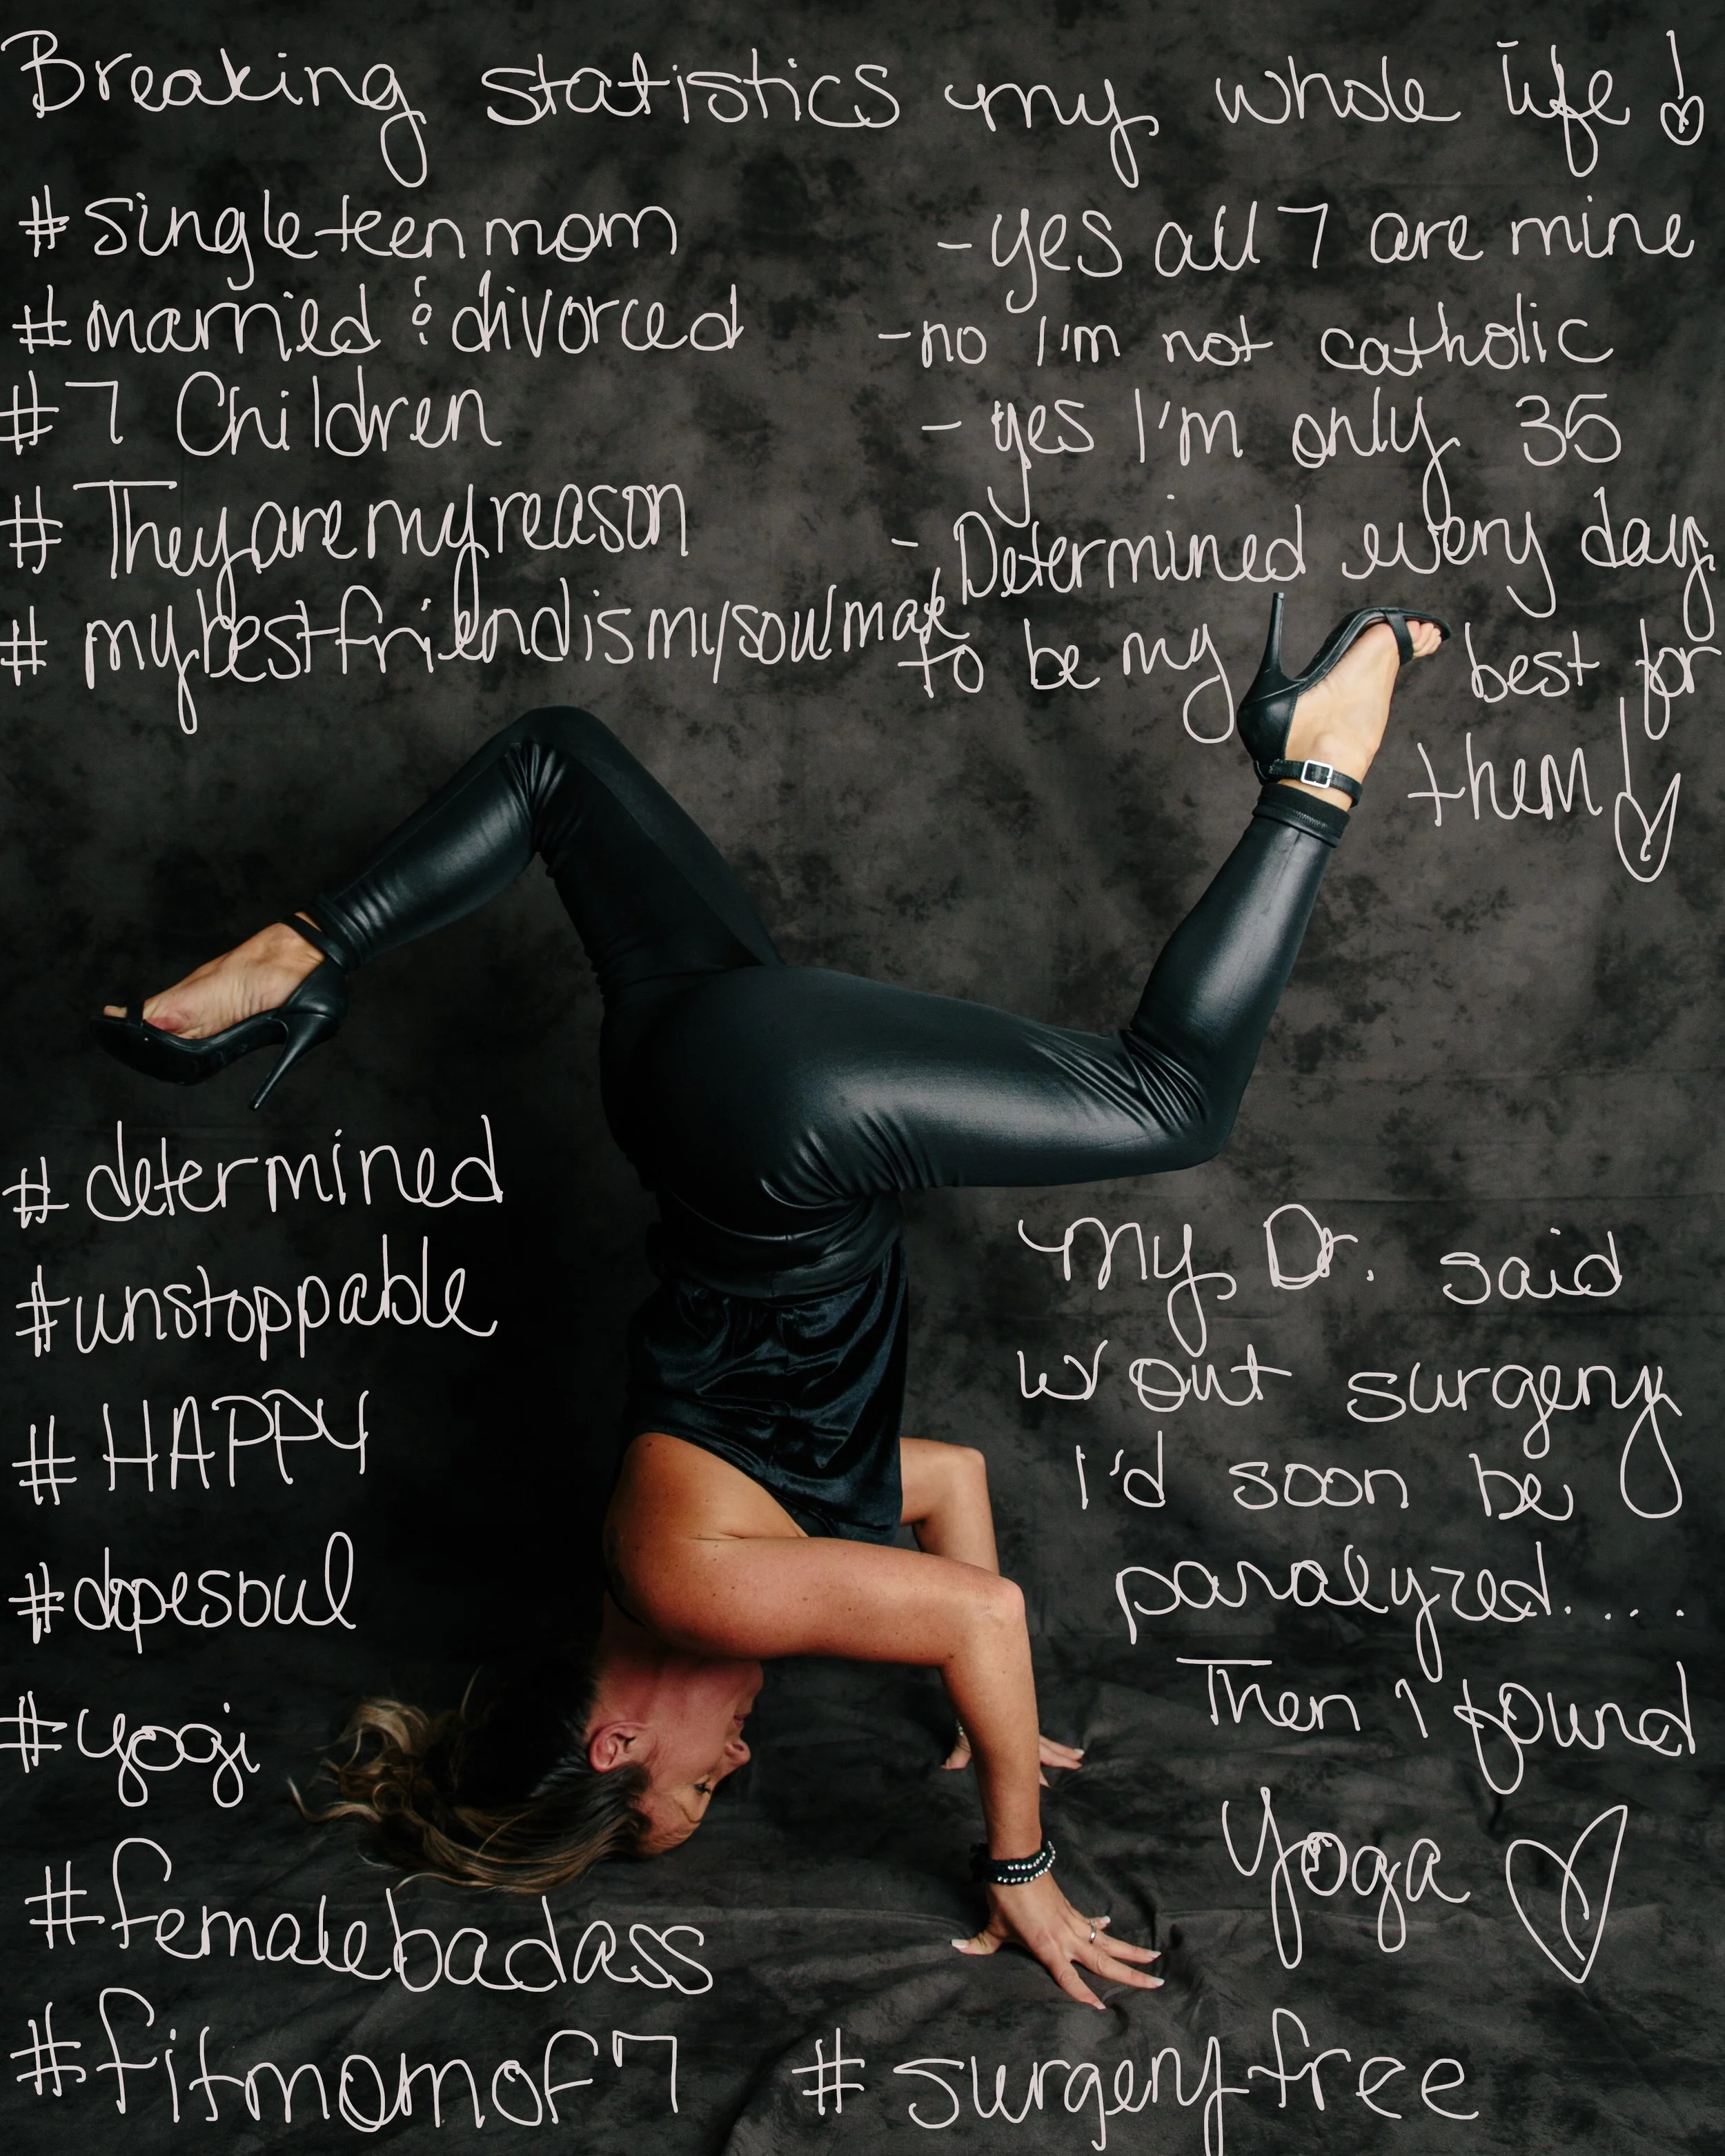 Breaking statistics my whole life!
#singleteenmom
#married & divorced
#7 Children
#Theyaremyreason
#mybestfriendismysoulmate
- yes all 7 are mine
- no I'm not catholic
- yes I'm only 35
- Determined every day
to be my best for
them!
#determined
#unstoppable
#HAPPY
#dopesoul
#yogi
#femalebadass
#fitmomof7
My Dr. said
w/out surgery
I'd soon be
paralyzed....
Then I found
Yoga
#surgeryfree